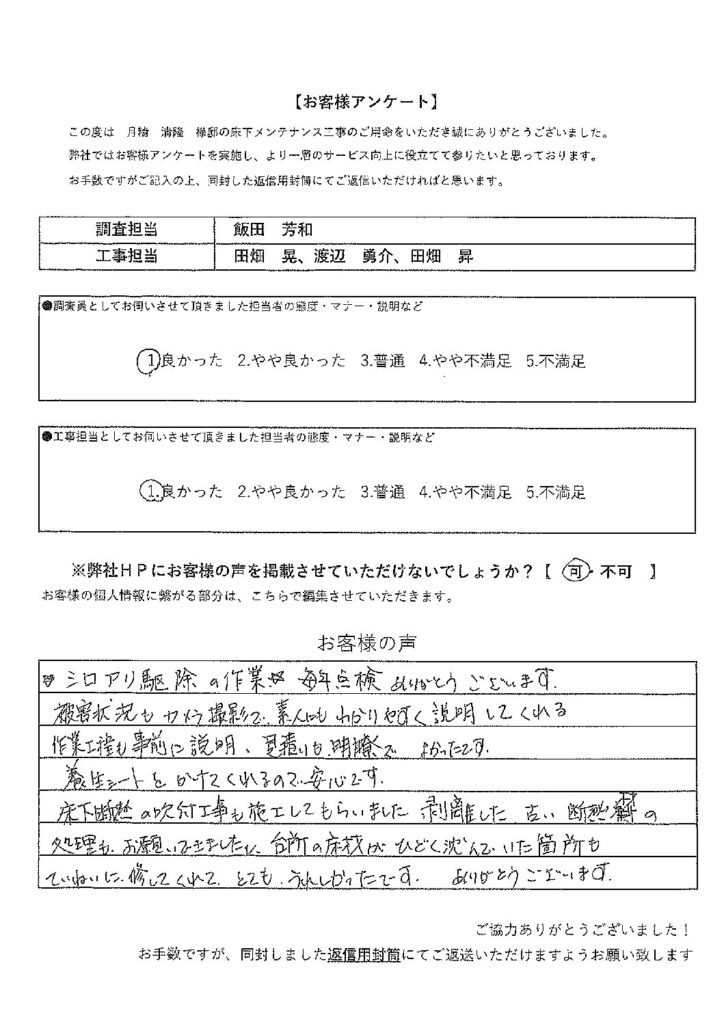 【お客様アンケート】
この度は 月楢 清隆 様邸の床下メンテナンス工事のご用命をいただき誠にありがとうございました。
弊社ではお客様アンケートを実施し、より一層のサービス向上に役立てて参りたいと思っております。
お手数ですがご記入の上、同封した返信用封筒にてご返信いただければと思います。
調査担当 飯田 芳和
工事担当 田畑 晃、渡辺 勇介、田畑 昇
●調査員としてお伺いさせて頂きました担当者の態度・マナー・説明など
1.良かった 2.やや良かった 3.普通 4.やや不満足 5.不満足
●工事担当としてお伺いさせて頂きました担当者の態度・マナー・説明など
1.良かった 2.やや良かった 3.普通 4.やや不満足 5.不満足
※弊社HPにお客様の声を掲載させていただけないでしょうか？【 可・不可 】
お客様の個人情報に繋がる部分は、こちらで編集させていただきます。
お客様の声
シロアリ駆除の作業 毎年点検 ありがとうございます.
被害状況もカメラ撮影で、素人にもわかりやすく説明してくれる
作業工程も事前に説明、見積りも明瞭で よかったです.
養生シートをかけてくれるので安心です.
床下断熱の吹付工事も施工してもらいました 剥離した古い断熱材の
処理もお願いできましたし、台所の床材がひどく沈んでいた箇所も
ていねいに修してくれて とても うれしかったです. ありがとうございます.
ご協力ありがとうございました！
お手数ですが、同封しました返信用封筒にてご返送いただけますようお願い致します